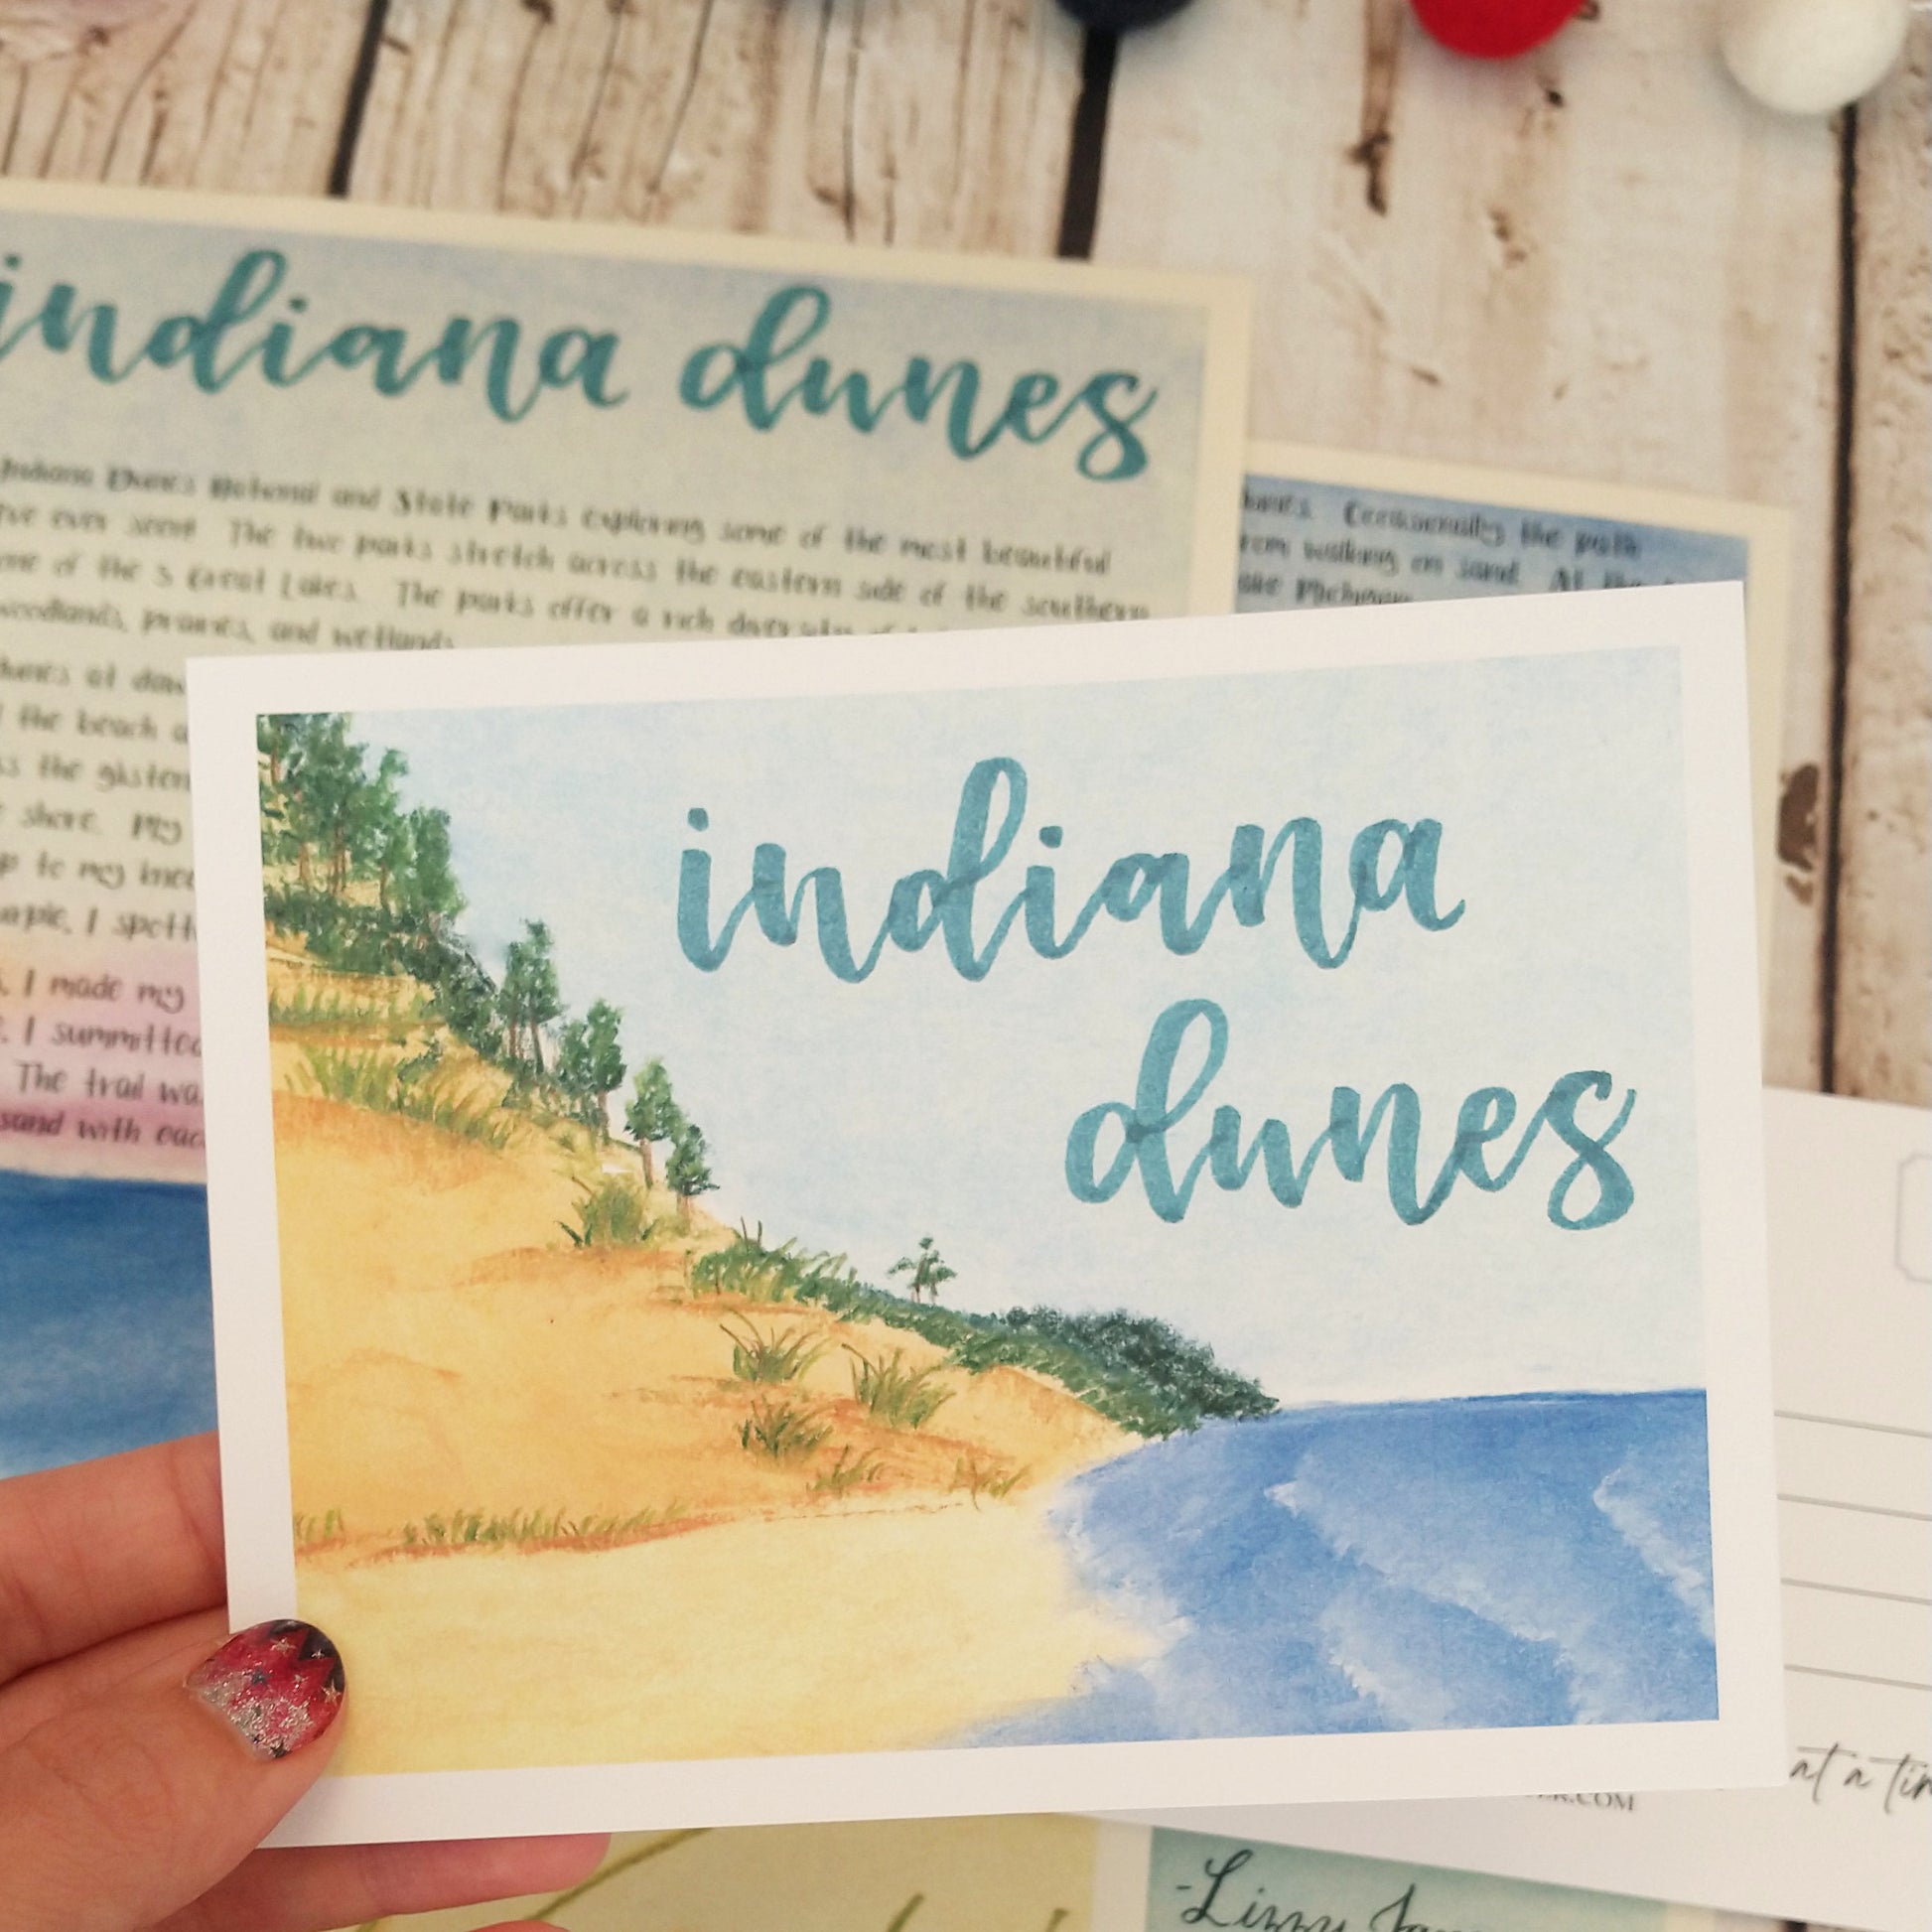 indiana dunes
Indiana Dunes National and State Parks exploring some of the most beautiful
I've ever seen! The two parks stretch across the eastern side of the southern
one of the 5 Great Lakes. The parks offer a rich diversity
woodlands, prairies, and wetlands.
dunes at daw
the beach a
ss the glisten
shore. My
p to my knee
purple, I spott
. I made my
. I summitted
The trail wa
sand with eac
dunes. Occasionally the path
from walking on sand. At the
Lake Michigan
indiana
dunes
at a tim
ER.COM
-Lizzy